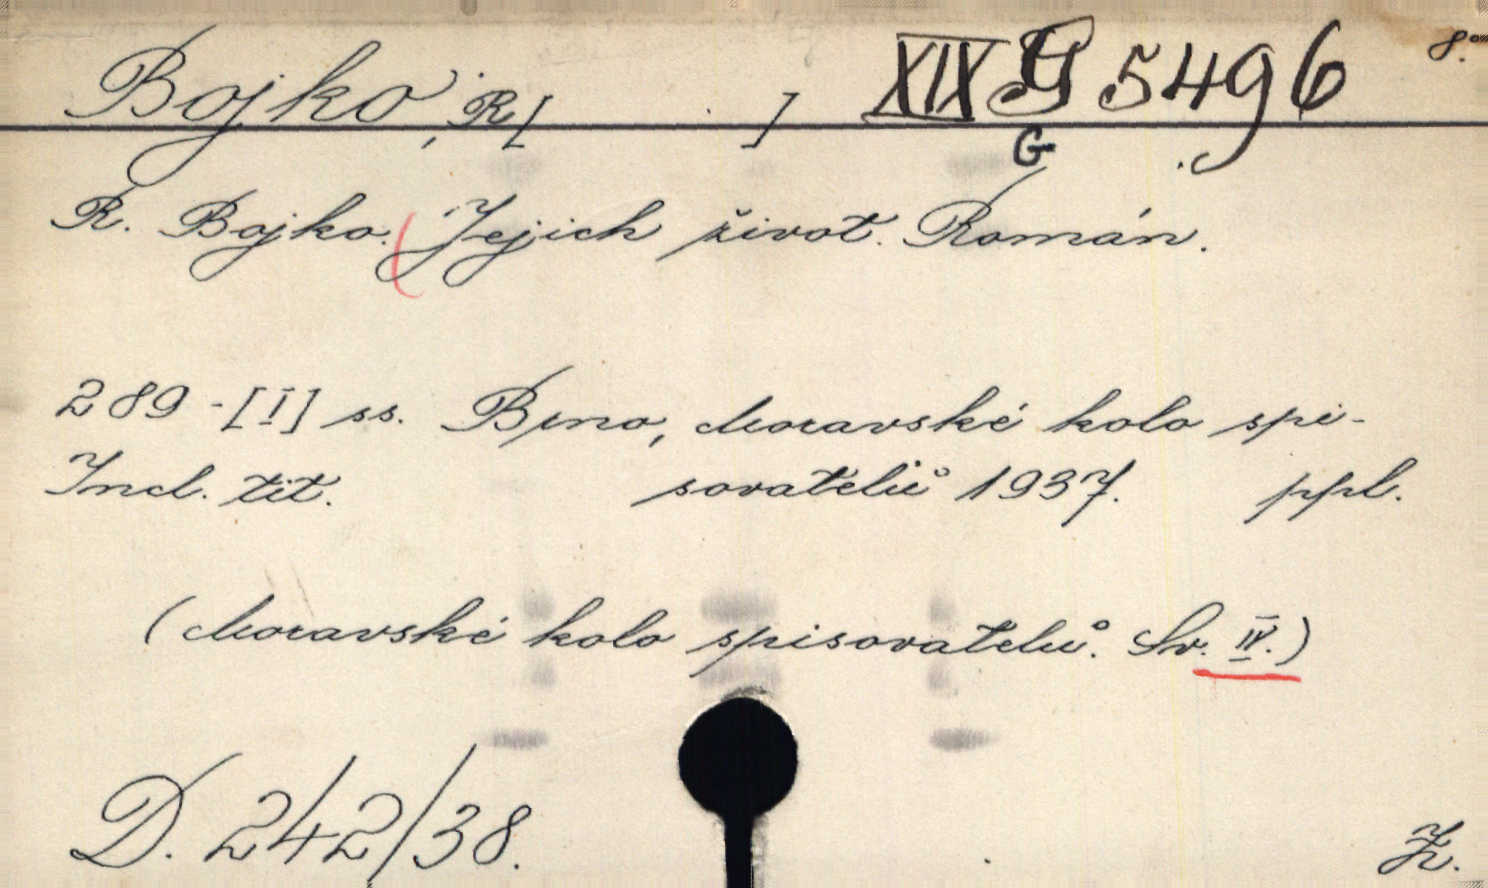 Bojko, R[ ] XIX G 5496 8.°
G
R. Bojko. Jejich život. Román.
289 - [I] ss. Brno, Moravské kolo spi-
Incl. tit. sovatelů 1937. ppl.
(Moravské kolo spisovatelů. Sv. IV.)
D. 242/38.